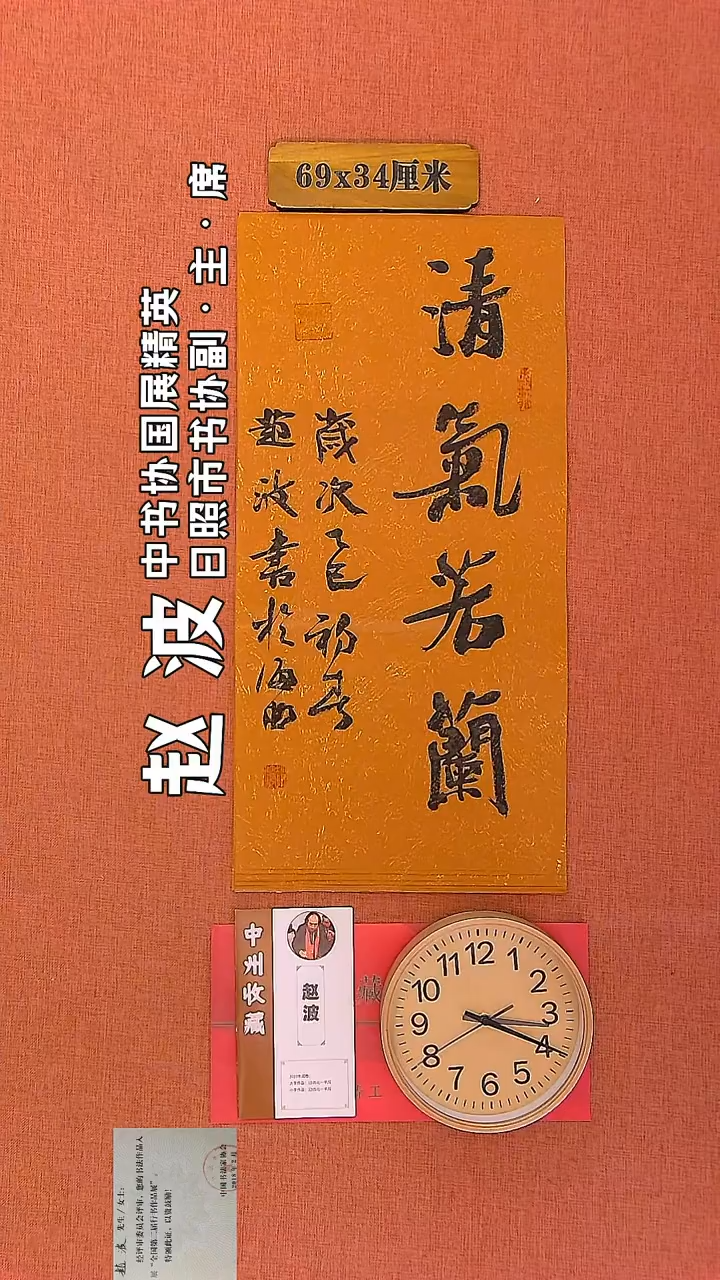 69x34厘米
清氣若蘭
歲次乙巳初春
趙波書於海曲
赵波
中书协国展精英
日照市书协副·主·席
中
藏
赵波
藏
12
1
2
3
4
5
6
7
8
9
10
11
趙波 先生/女士:
经评审委员会评审,您的书法作品入
展“全国第二届行书作品展”。
特颁此证,以资鼓励!
中国书法家协会